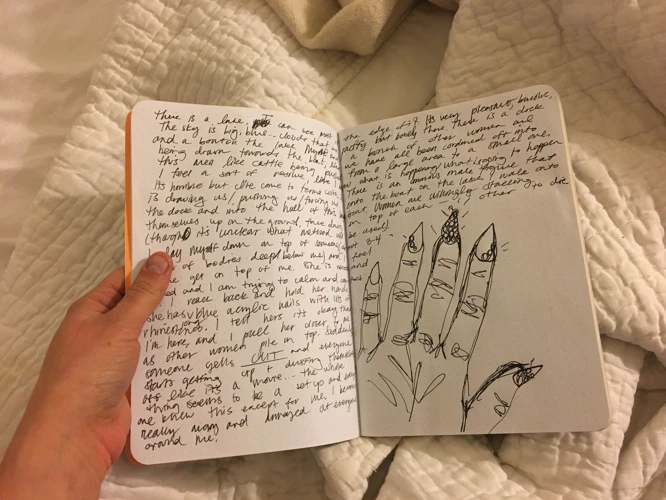 There is a lake, I can see most
The sky is big, blue.. clouds that
and a boat on the lake. Myself
being drawn towards the boat,
this area like cattle being
I feel a sort of passive, like I
Its horrible but I've come to terms with
is drawing us/ putting us/ forcing us
the dock and into the hull of this
themselves up on the ground,
(though it's unclear what
I lay myself down on top of
of bodies deep below me) and
get on top of me. She is
and I am trying to calm and
reach back and hold her hand
She has long blue acrylic nails with
rhinestones. I tell her its okay that
I'm here, and I pull her closer to me
as other women pile on top. Suddenly
someone yells CUT and everyone
starts getting up + dusting themselves
its like its a movie... the whole
thing seems to be a set up and every
one knew this except for me, I became
really angry and enraged at everyone
around me.
the edge of it. Its very pleasant, bucolic,
pretty but lonely there. There is a dock
a bunch of other women and
we have all been corralled off into
from a large area to a small one,
know what is happening, what is going to happen
There is an ominous male figure that
onto the boat on the lake, I walk onto
boat. Women are willingly stacking
on top of each other to die
be used)
3-4
feel
and